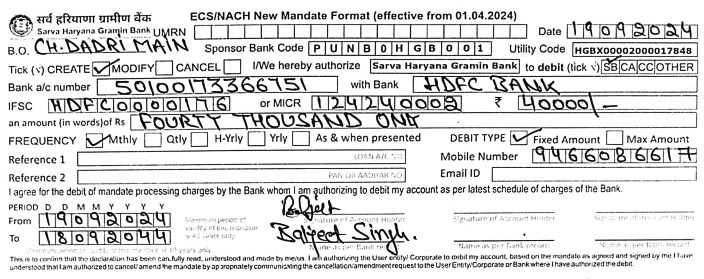 सर्व हरियाणा ग्रामीण बैंक ECS/NACH New Mandate Format (effective from 01.04.2024)
Sarva Haryana Gramin Bank UMRN Date 19092024
B.O. CH. DADRI MAIN Sponsor Bank Code PUNB0HGB001 Utility Code HGBX00002000017848
Tick (√) CREATE ✓ MODIFY CANCEL I/We hereby authorize Sarva Haryana Gramin Bank to debit (tick √) SB CA CC OTHER
Bank a/c number 50100173366751 with Bank HDFC BANK
IFSC HDFC0000176 or MICR 124240002 ₹ 40000/-
an amount (in words)of Rs FOURTY THOUSAND ONLY
FREQUENCY ✓ Mthly Qtly H-Yrly Yrly As & when presented DEBIT TYPE ✓ Fixed Amount Max Amount
Reference 1 LOAN A/C NO. Mobile Number 9466086617
Reference 2 PAN OR AADHAR NO. Email ID
I agree for the debit of mandate processing charges by the Bank whom I am authorizing to debit my account as per latest schedule of charges of the Bank.
PERIOD D D M M Y Y Y Y
From 19092024 Maximum period of validity of this mandate is 40 years only Signature of Account Holder Signature of Account Holder Signature of Account Holder
To 18092044 Baljeet Singh.
Maximum period of validity of this mandate is 40 years only Name as per Bank record Name as per bank record Name as per bank record
This is to confirm that the declaration has been carefully read, understood and made by me/us. I am authorizing the User entity/ Corporate to debit my account, based on the mandate as agreed and signed by me I have
understood that I am authorized to cancel/amend the mandate by appropriately communicating the cancellation/amendment request to the User Entity/Corporate or Bank where I have authorized the debit.